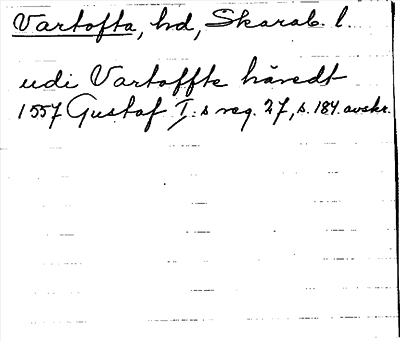 Vartofta, hd, Skarab. l.
udi Vartoffte häredt
1557 Gustaf I:s reg. 27, s. 184. avskr.